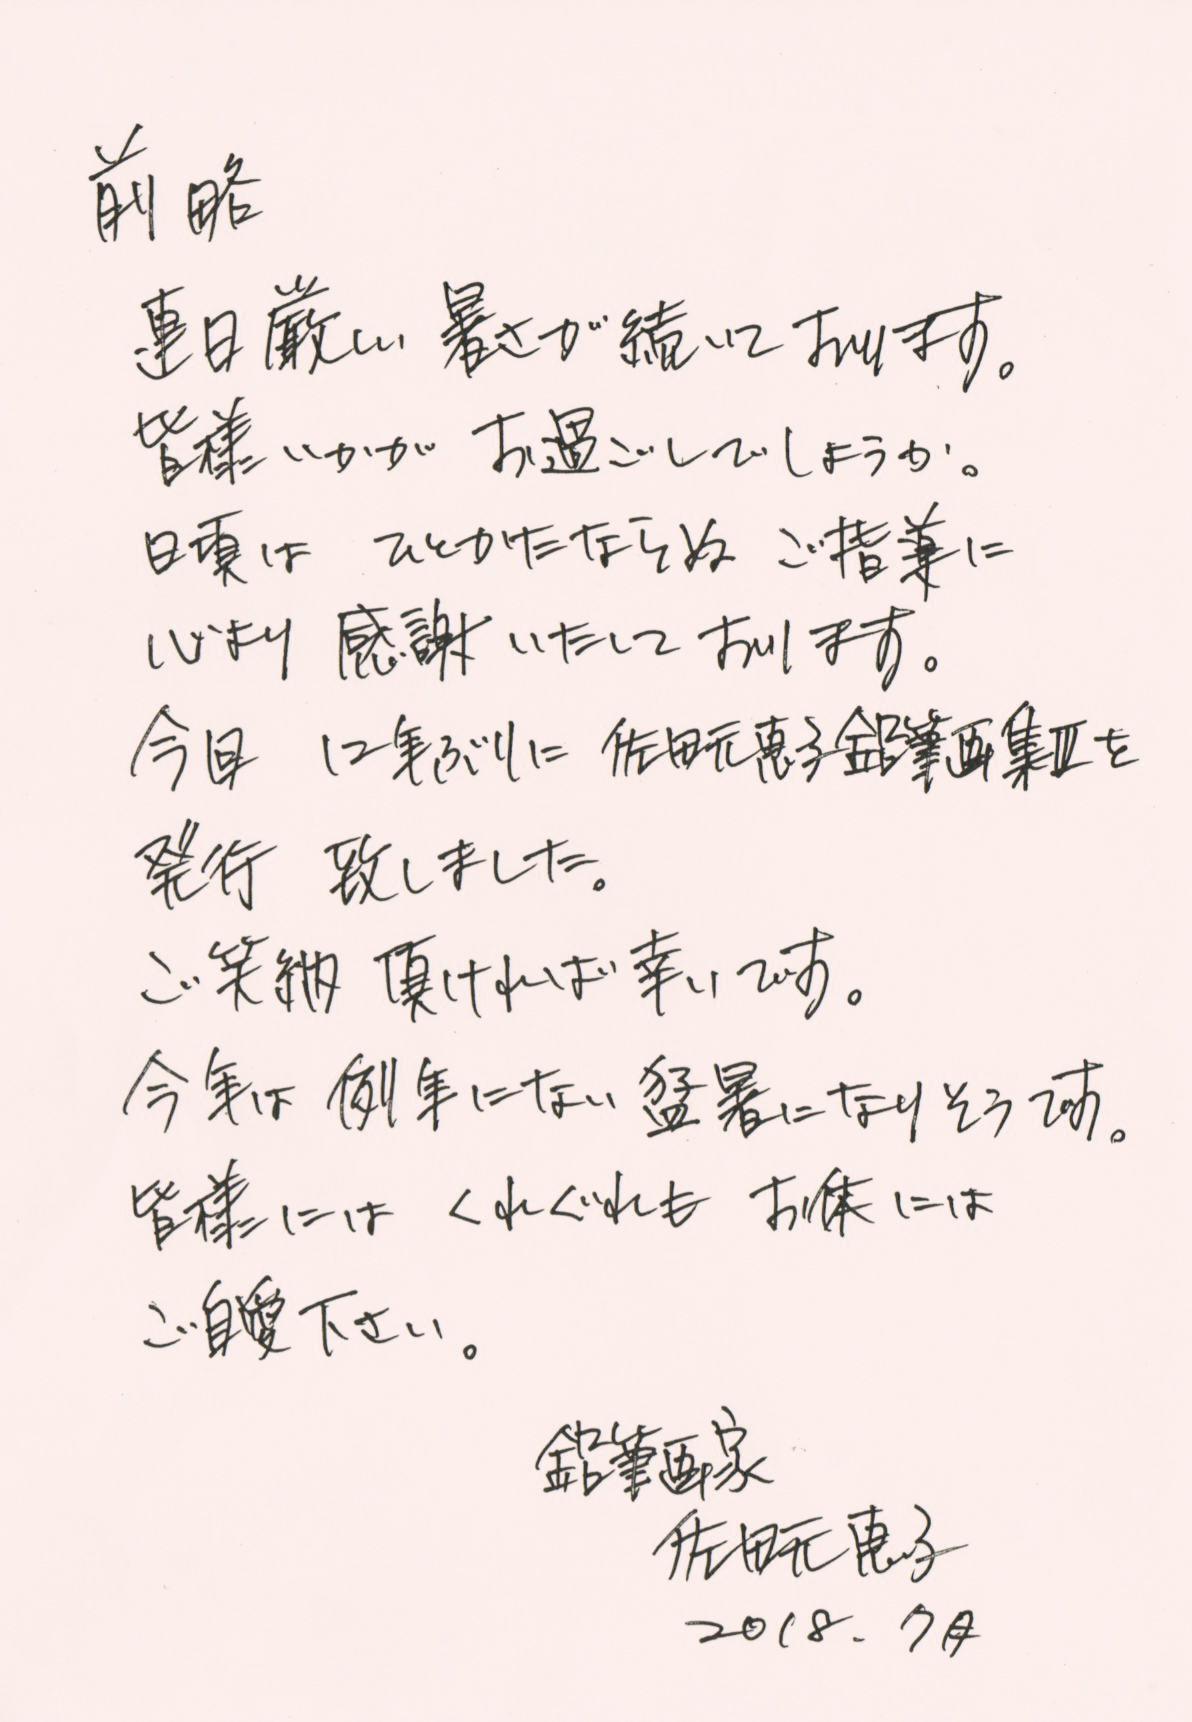 前略
連日厳しい暑さが続いております。
皆様いかがお過ごしでしょうか。
日頃はひとかたならぬご指導に
心より感謝いたしております。
今回 12年ぶりに佐田元恵子鉛筆画集Ⅲを
発行致しました。
ご笑納頂ければ幸いです。
今年は例年にない猛暑になりそうです。
皆様にはくれぐれもお体には
ご自愛下さい。
鉛筆画家
佐田元恵子
2018.7月